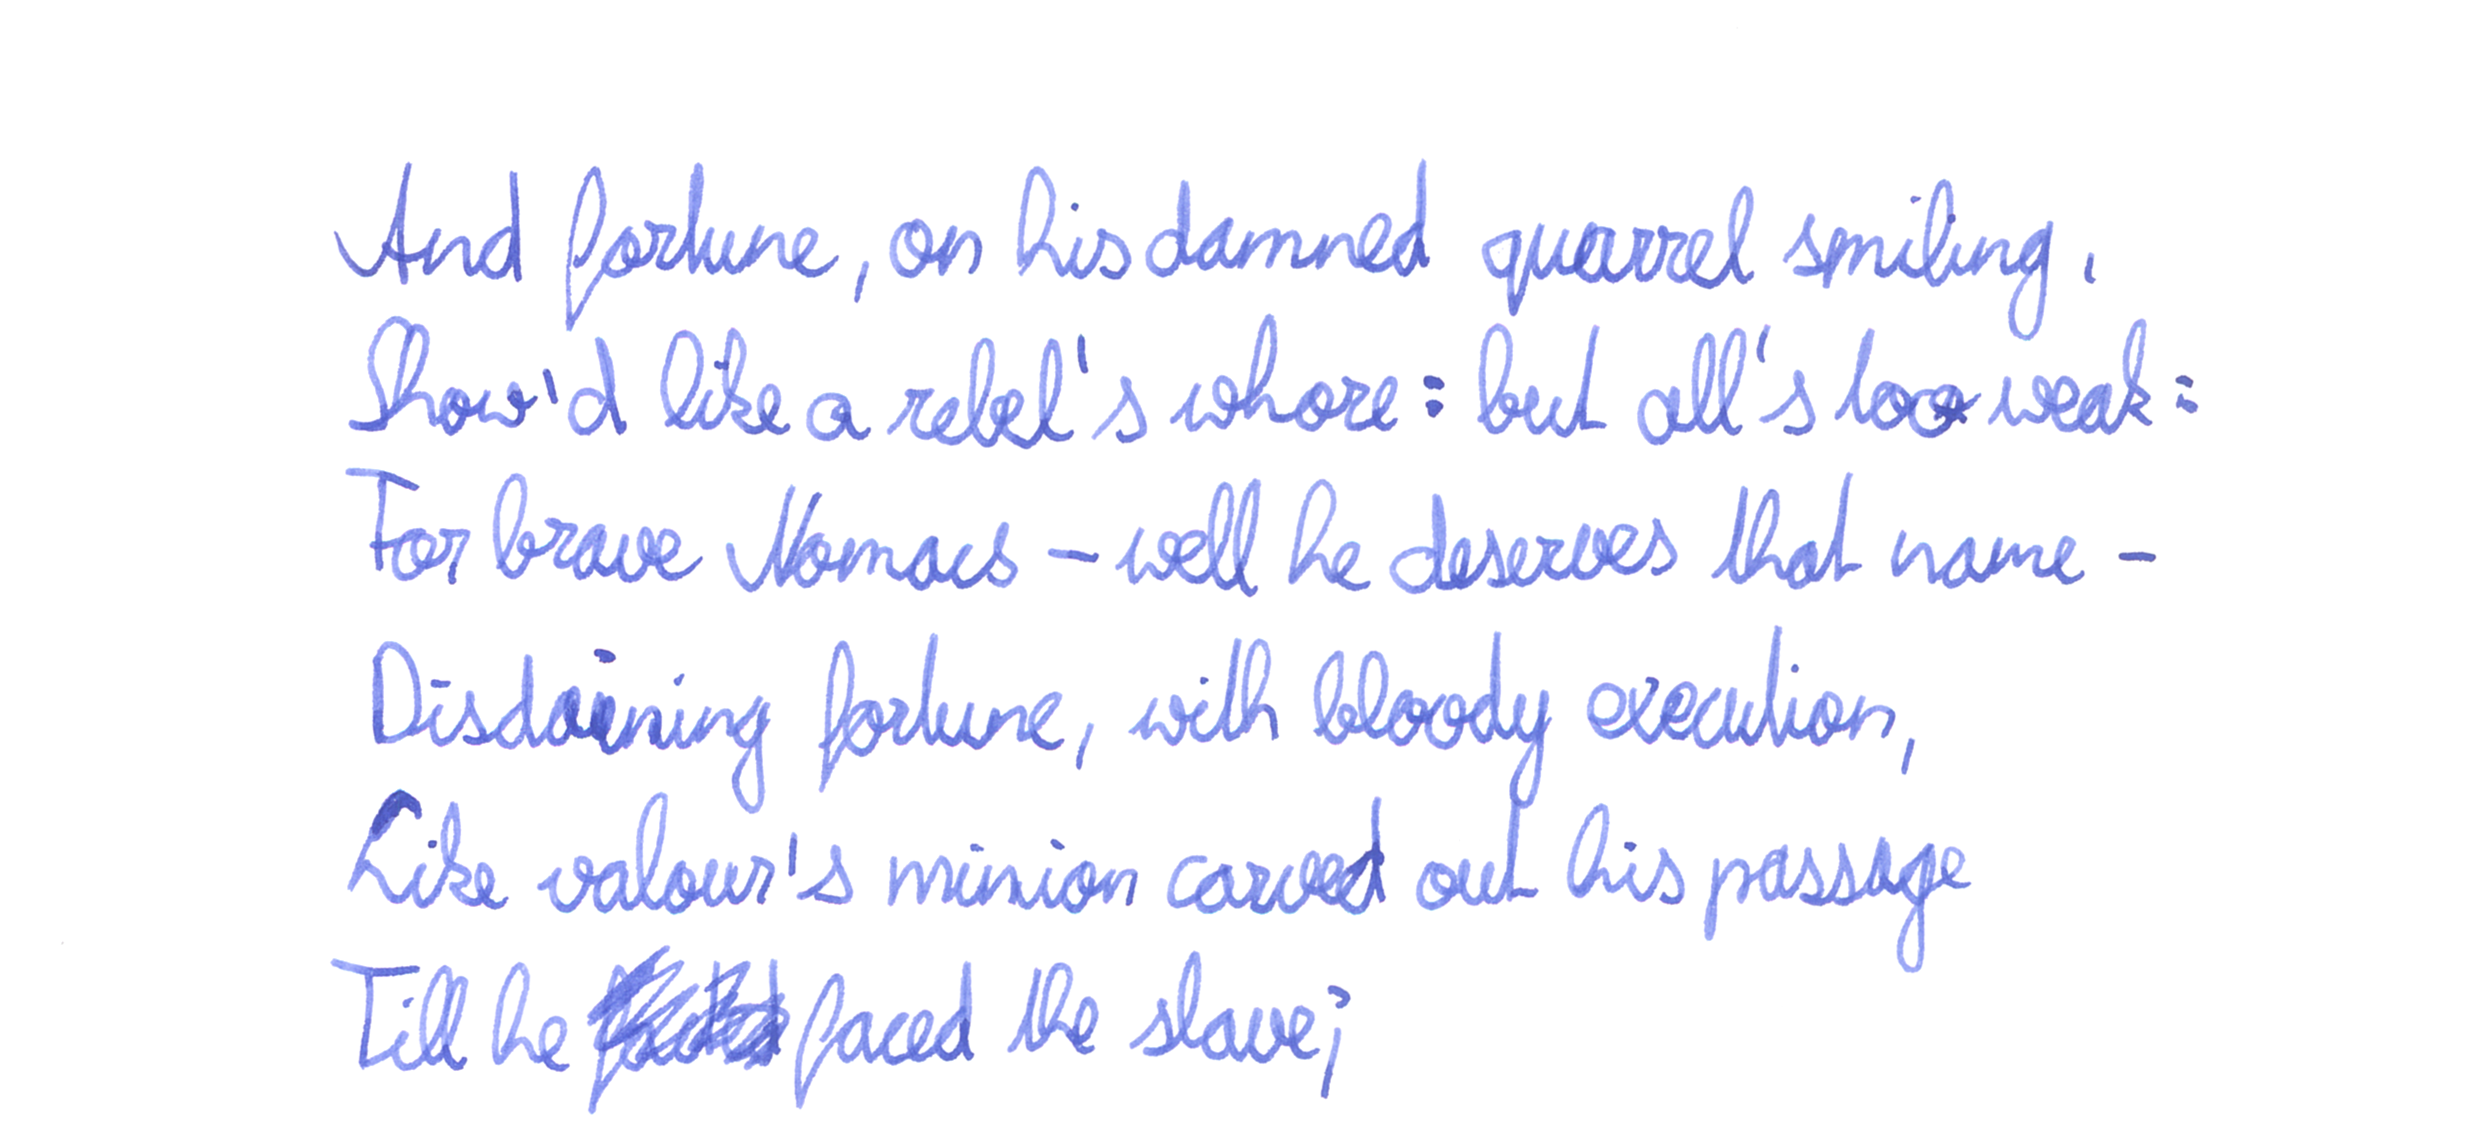 And fortune, on his damned quarrel smiling,
Show'd like a rebel's whore: but all's too weak:
For brave Nomacs - well he deserves that name -
Disdaining fortune, with bloody execution,
Like valour's minion carved out his passage
Till he faced the slave;